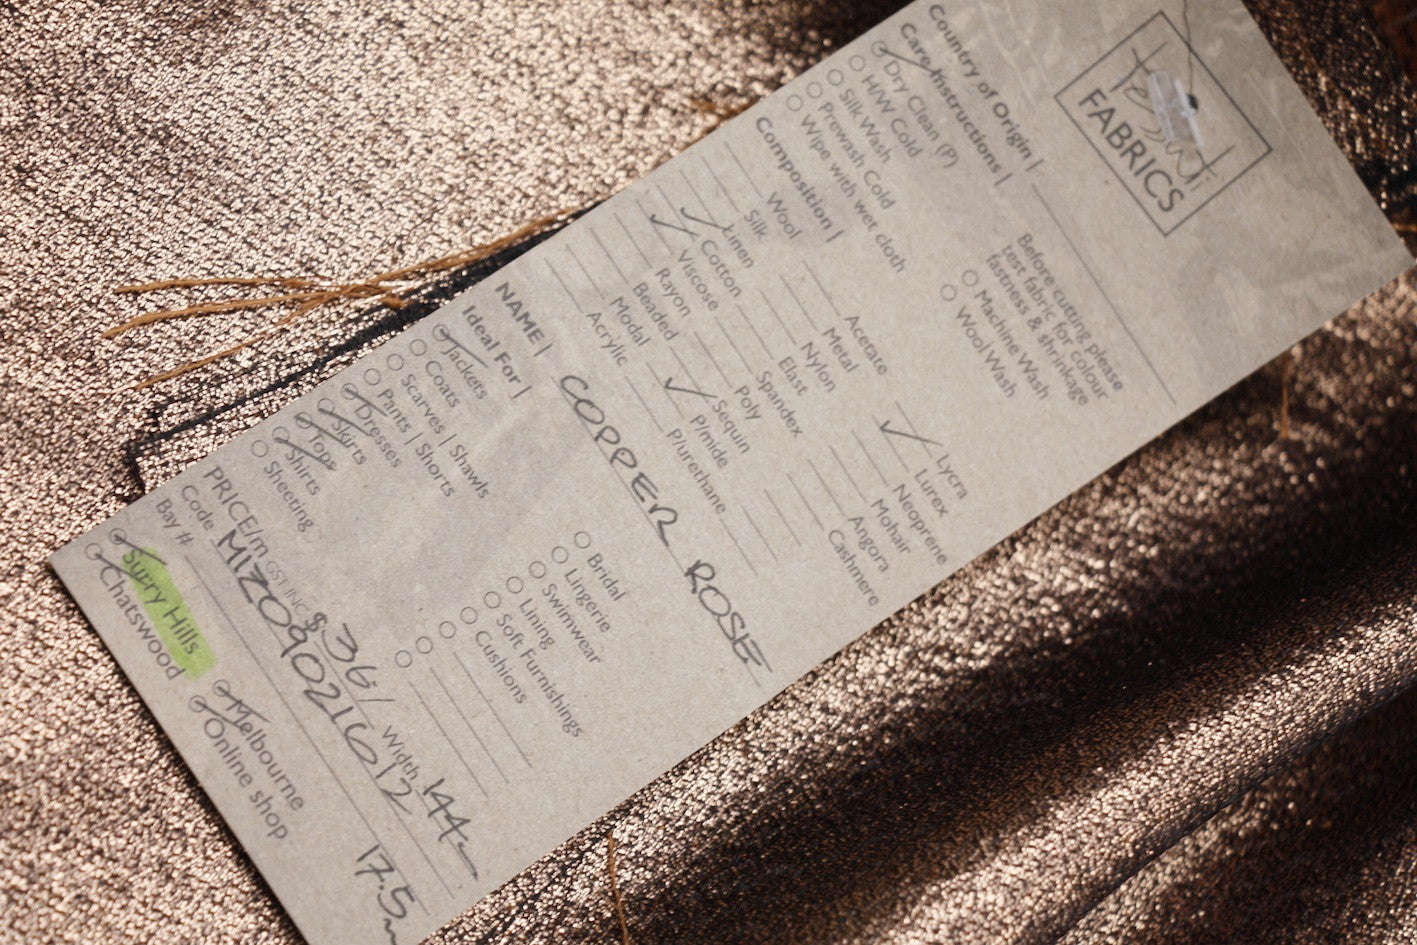 Tessuti
FABRICS
Country of Origin |
Care Instructions |
Dry Clean (P)
H/W Cold
Silk Wash
Prewash Cold
Wipe with wet cloth
Before cutting please
test fabric for colour
fastness & shrinkage
Machine Wash
Wool Wash
Composition |
Wool
Silk
Linen
Cotton
Viscose
Rayon
Beaded
Modal
Acrylic
Acetate
Metal
Nylon
Elast
Spandex
Poly
Sequin
P/mide
P/urethane
Lycra
Lurex
Neoprene
Mohair
Angora
Cashmere
NAME | COPPER ROSE
Ideal For |
Jackets
Coats
Scarves | Shawls
Pants | Shorts
Dresses
Skirts
Tops
Shirts
Sheeting
Bridal
Lingerie
Swimwear
Lining
Soft Furnishings
Cushions
PRICE/m GST INC $36/ Width 144
Code MIZ09021612
Bay # 17.5m
Surry Hills
Chatswood
Melbourne
Online shop